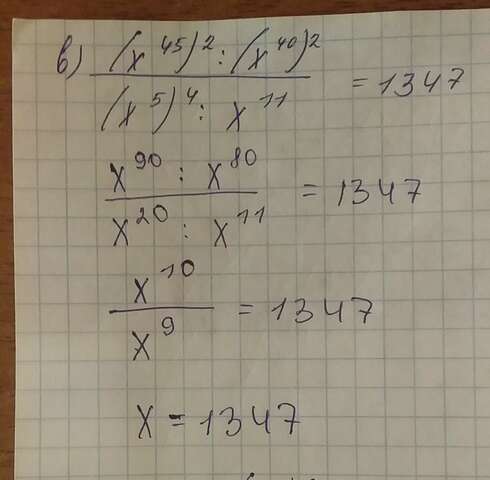 в) (x^45)^2 : (x^40)^2 / (x^5)^4 : x^11 = 1347
x^90 : x^80 / x^20 : x^11 = 1347
x^10 / x^9 = 1347
x = 1347